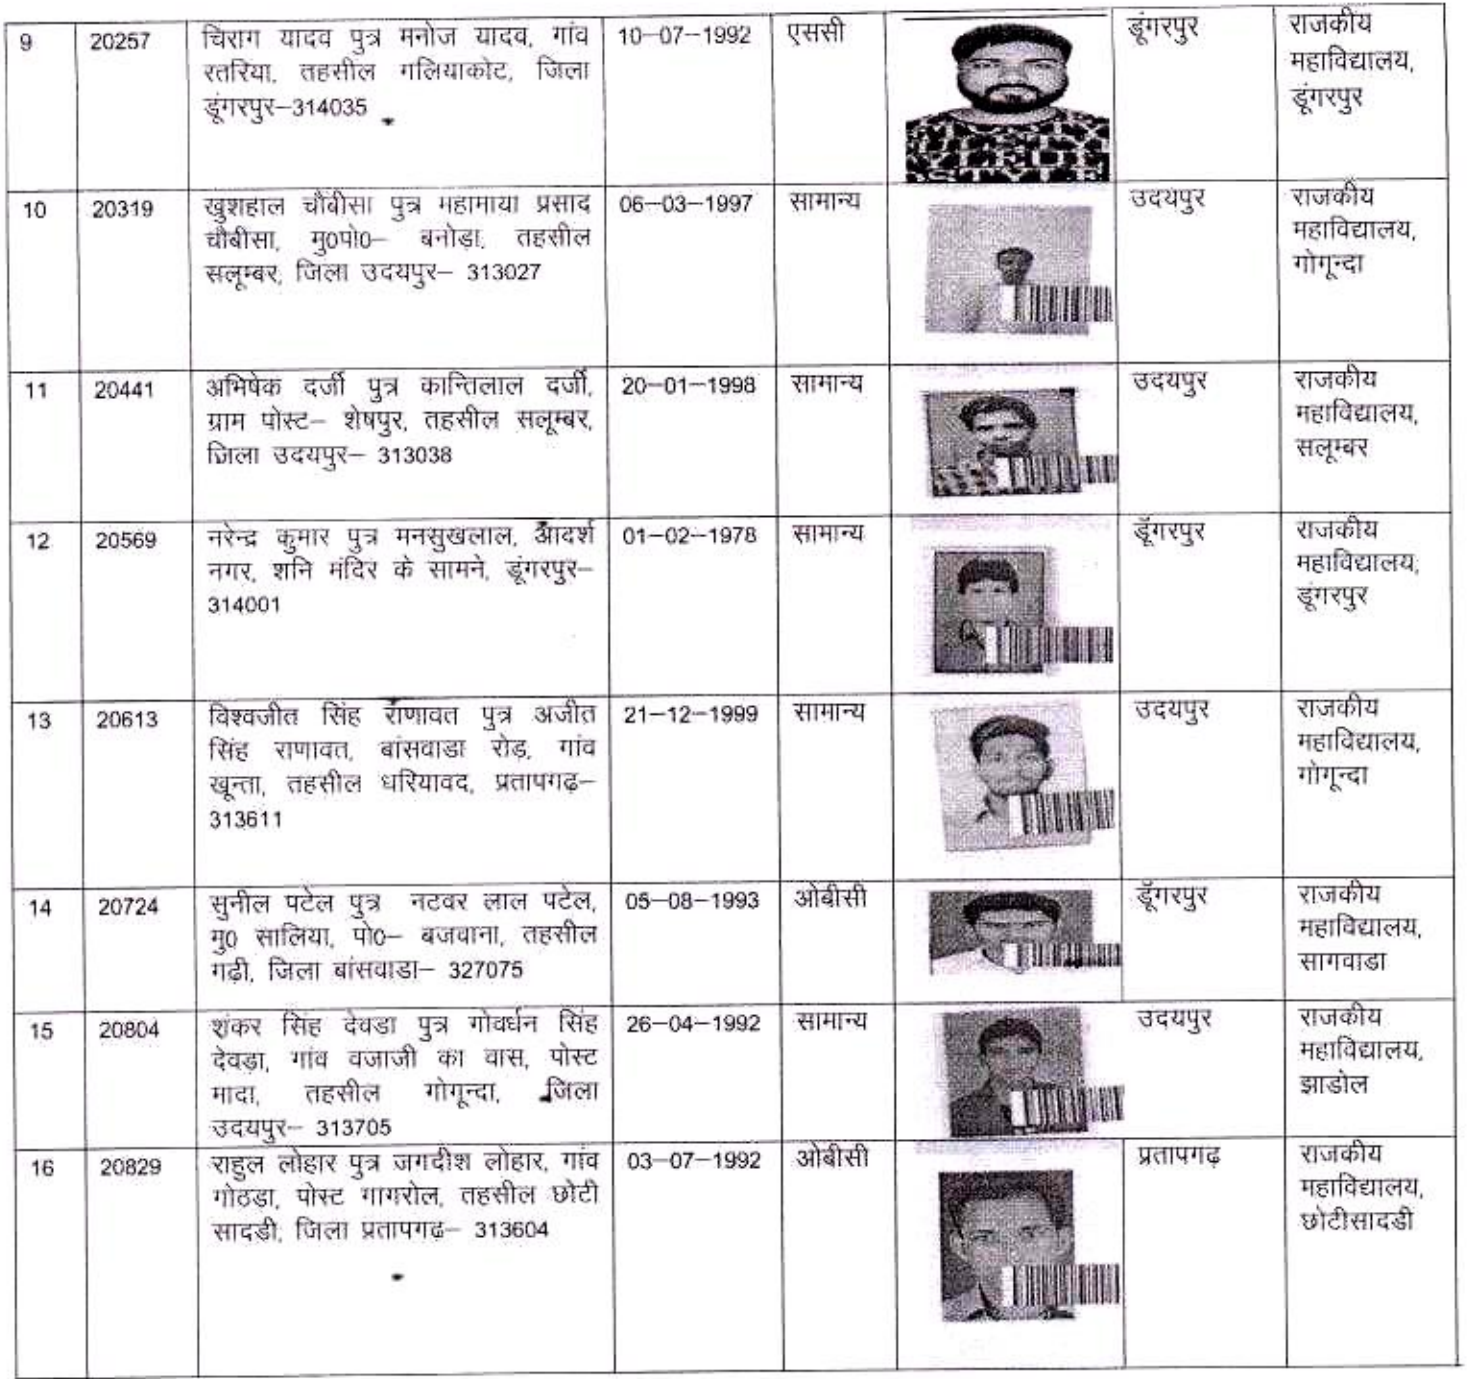 9
20257
चिराग यादव पुत्र मनोज यादव, गांव
रतरिया, तहसील गलियाकोट, जिला
डूंगरपुर–314035
10–07–1992
एससी
डूंगरपुर
राजकीय
महाविद्यालय,
डूंगरपुर
10
20319
खुशहाल चौबीसा पुत्र महामाया प्रसाद
चौबीसा, मु0पो0– बनोड़ा, तहसील
सलूम्बर, जिला उदयपुर– 313027
06–03–1997
सामान्य
उदयपुर
राजकीय
महाविद्यालय,
गोगून्दा
11
20441
अभिषेक दर्जी पुत्र कान्तिलाल दर्जी,
ग्राम पोस्ट– शेषपुर, तहसील सलूम्बर,
जिला उदयपुर– 313038
20–01–1998
सामान्य
उदयपुर
राजकीय
महाविद्यालय,
सलूम्बर
12
20569
नरेन्द्र कुमार पुत्र मनसुखलाल, आदर्श
नगर, शनि मंदिर के सामने, डूंगरपुर–
314001
01–02–1978
सामान्य
डूँगरपुर
राजकीय
महाविद्यालय,
डूंगरपुर
13
20613
विश्वजीत सिंह राणावत पुत्र अजीत
सिंह राणावत, बांसवाडा रोड़, गांव
खून्ता, तहसील धरियावद, प्रतापगढ़–
313611
21–12–1999
सामान्य
उदयपुर
राजकीय
महाविद्यालय,
गोगून्दा
14
20724
सुनील पटेल पुत्र नटवर लाल पटेल,
मु0 सालिया, पो0– बजवाना, तहसील
गढी, जिला बांसवाडा– 327075
05–08–1993
ओबीसी
डूँगरपुर
राजकीय
महाविद्यालय,
सागवाडा
15
20804
शंकर सिंह देवडा पुत्र गोवर्धन सिंह
देवड़ा, गांव वजाजी का वास, पोस्ट
मादा, तहसील गोगून्दा, जिला
उदयपुर– 313705
26–04–1992
सामान्य
उदयपुर
राजकीय
महाविद्यालय,
झाडोल
16
20829
राहुल लोहार पुत्र जगदीश लोहार, गांव
गोठड़ा, पोस्ट गागरोल, तहसील छोटी
सादडी, जिला प्रतापगढ़– 313604
03–07–1992
ओबीसी
प्रतापगढ़
राजकीय
महाविद्यालय,
छोटीसादडी